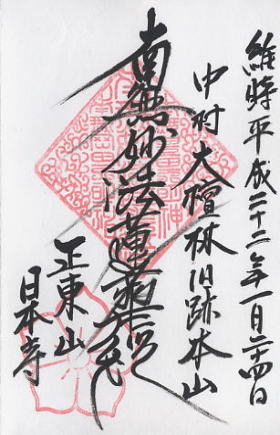 維時平成二十二年一月二十四日
中村大檀林旧跡本山
南無妙法蓮華経
正東山
日本寺